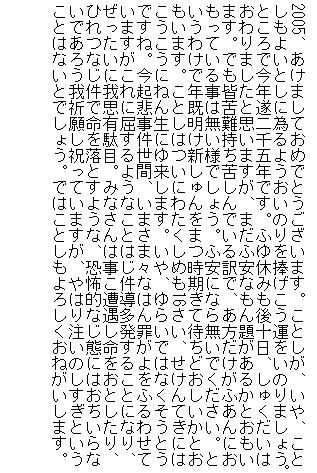 2005、あけましておめでとうございます。ことしが、いや、こと
しもよいとしに為るようおいのりを捧げこう運をいのりましょう。
ところで今年遂二千五年です。ふゆ休みも後十日、しゅくだいは
おわりましたと思いますが、まだふ安なもん題があるかとおもい
ます。でも皆苦難持ち苦しんでいる訳で、あ方だけがふあんにお
もっている事は無い様でしょう。ふ安になら無いでください。と
いうわけで年既明け新しゅんをまつ時期ぎて待ちどおしいかとお
もいます。ことしはついにわたくしめも16さい、せけんてきには
こうこうにねん生にゆ来します。いや、ゆらいではなくそうとう
ですね。今起悲事件世間、いまさま々なはん罪がよをふるわせて
いますがこれに屈するようなことはじ件導多発することになり、
ぜったいに我思有駄目。みなさんは事こ遭遇し命をおとしたり、
ひれつなじ件で命を落とすような、恐怖的なじ態にはおちいらな
いであろう我祈願し祝っていますが、やはり注いのしすぎという
ことはないとでしょう。ではことしもよろしくおねがいします。